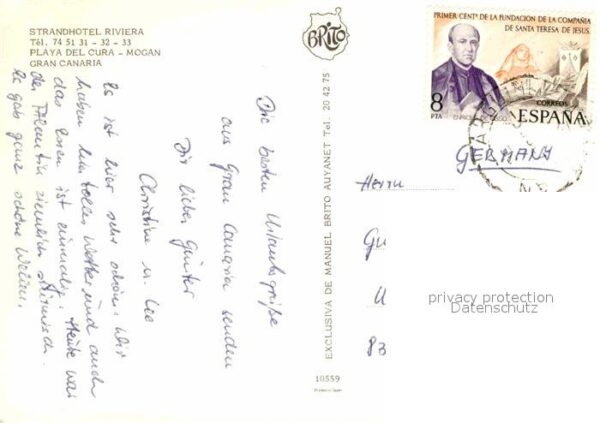 STRANDHOTEL RIVIERA
Tél. 74 51 31 - 32 - 33
PLAYA DEL CURA - MOGAN
GRAN CANARIA
BRITO
Die besten Urlaubsgrüße
aus Gran Canaria senden
Dir lieber Günter
Christine u. Leo
Es ist hier sehr schön. Wir
haben hier tolles Wetter und auch
das Essen ist einmalig. Heute war
der Atlantik ziemlich stürmisch.
Es gab ganz schöne Wellen.
EXCLUSIVA DE MANUEL BRITO AUYANET Tel. 20 42 75
10559
PRIMER CENTº DE LA FUNDACION DE LA COMPAÑIA
DE SANTA TERESA DE JESUS.
8
PTA
CORREOS
ESPAÑA
GERMANY
Herrn
Gü
U
83
privacy protection
Datenschutz